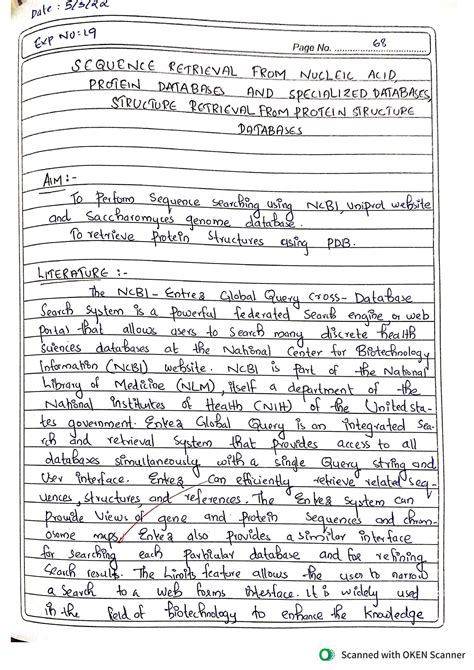 Date : 5/3/22
Exp No: 19
Page No. 68
SEQUENCE RETRIEVAL FROM NUCLEIC ACID,
PROTEIN DATABASES AND SPECIALIZED DATABASES,
STRUCTURE RETRIEVAL FROM PROTEIN STRUCTURE
DATABASES
AIM :-
To perform Sequence searching using NCBI, uniprot website
and Saccharomyces genome database.
To retrieve protein structures using PDB.
LITERATURE :-
The NCBI - Entrez Global Query Cross - Database
Search system is a powerful federated Search engine or web
portal that allows users to search many discrete health
sciences databases at the National Center for Biotechnology
Information (NCBI) website. NCBI is part of the National
Library of Medicine (NLM), itself a department of the
National institutes of Health (NIH) of the United sta-
tes government. Entrez Global Query is an integrated Sea-
rch and retrieval System that provides access to all
databases simultaneously with a single Query string and
User interface. Entrez can efficiently retrieve related seq-
uences, structures and references. The Entrez system can
provide views of gene and protein sequences and chrom-
osome maps. Entrez also provides a similar interface
for searching each particular database and for refining
Search results. The Limits feature allows the user to narrow
a Search to a web forms interface. It is widely used
in the field of biotechnology to enhance the knowledge
Scanned with OKEN Scanner